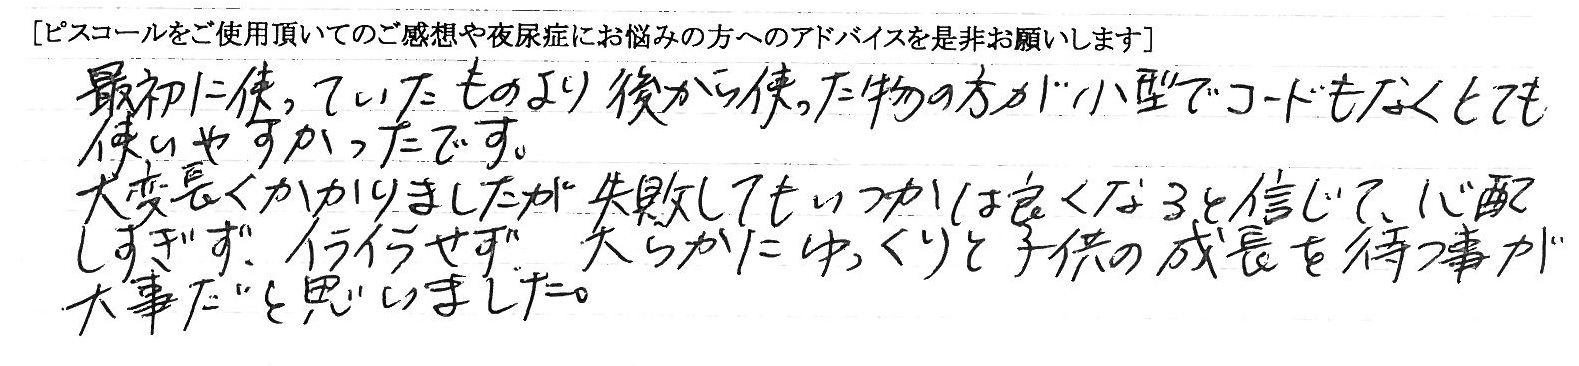 [ピスコールをご使用頂いてのご感想や夜尿症にお悩みの方へのアドバイスを是非お願いします]
最初に使っていたものより後から使った物の方が小型でコードもなくとても
使いやすかったです。
大変長くかかりましたが失敗してもいつかは良くなると信じて、心配
しすぎず、イライラせず 大らかにゆっくりと子供の成長を待つ事が
大事だと思いました。